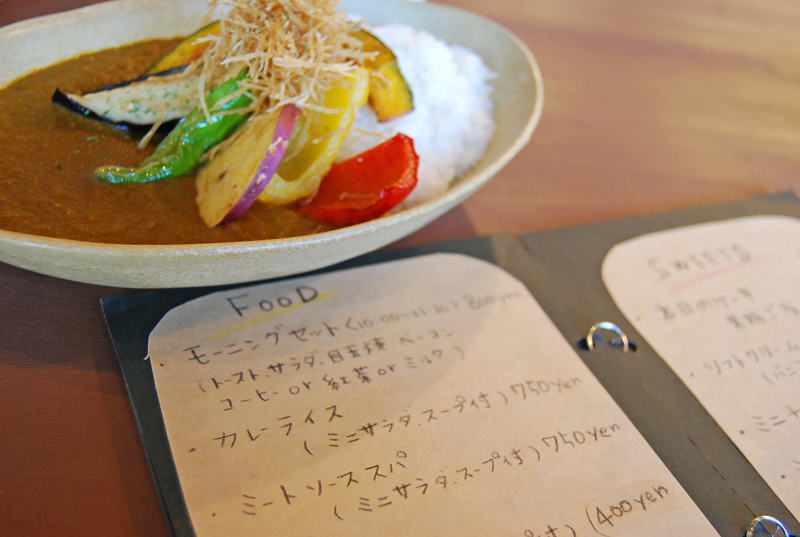 FOOD
・モーニングセット〈10:00〜11:30〉800yen
(トースト、サラダ、目玉焼 ベーコン
コーヒー or 紅茶 or ミルク )
・カレーライス
( ミニサラダ、スープ付 ) 750yen
・ミートソーススパ
( ミニサラダ、スープ付 ) 750yen
プ付 ) 400yen
SWEETS
・本日のケーキ
・ソフトクリーム
(バニ
・ミニ